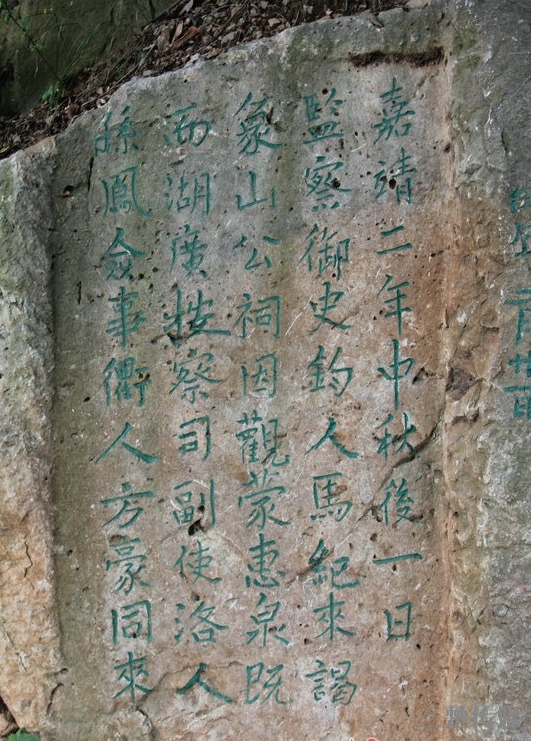 嘉靖二年中秋後一日
監察御史鈞人馬紀來謁
象山公祠因觀蒙惠泉既
而湖廣按察司副使洛人
孫鳳僉事衢人方豪同來